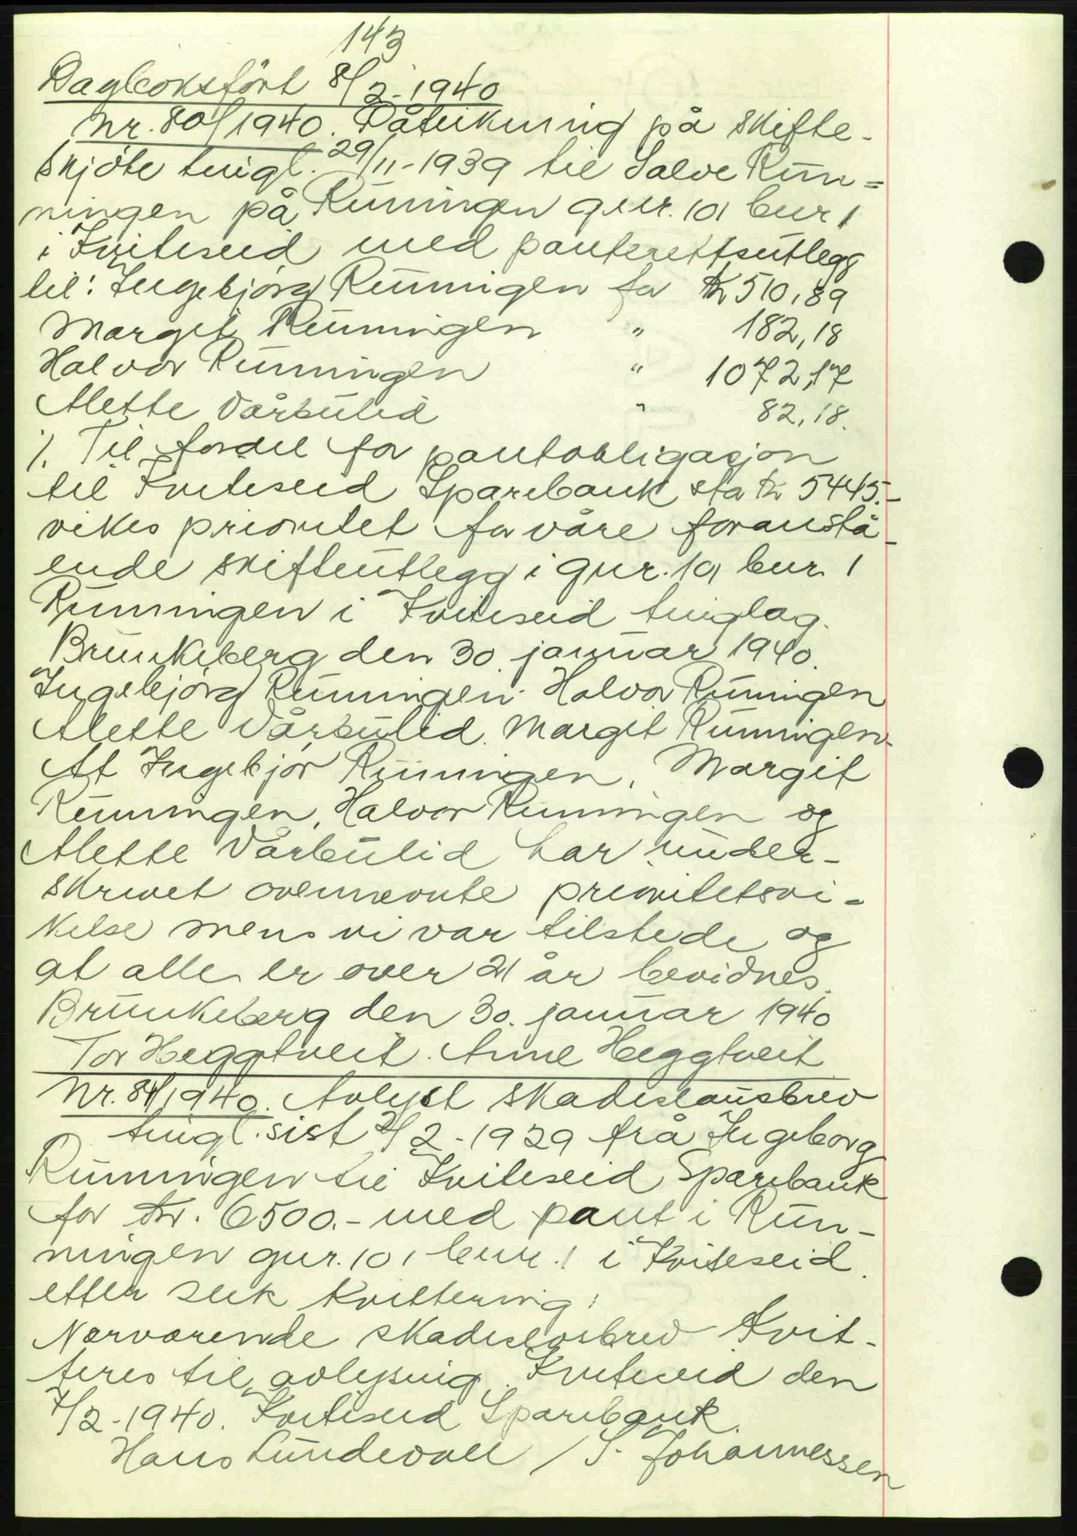 143
Dagboksfört 8/2-1940
Nr. 80/1940. Påteikning på skifte-
skjöte tingl. 29/11-1939 til Salve Run=
ningen på Runingen gnr. 101 bnr 1
i Kviteseid med panterettsutlegg
til: Ingebjörg Runningen for kr 510,89
Margit Runningen " 182,18
Halvor Runningen " 1072,17
Alette Vårbulid " 82,18.
/. Til fordel for pantobligasjon
til Kviteseid Sparebank sta kr 5445.-
vikes prioritet for våre foranstå-
ende skifteutlegg i gnr. 101 bnr. 1
Runningen i Kviteseid tinglag.
Brunkeberg den 30 januar 1940.
Ingebjörg Runningen. Halvor Runingen
Alette Vårbulid. Margit Runningen.
At Ingebjör Runningen, Margit
Runningen, Halvor Runningen og
Alette Vårbulid har under-
skrivet ovennevnte prioritetsvi-
kelse mens vi var tilstede og
at alle er over 21 år bevidnes.
Brunkeberg den 30. januar 1940
Tor Heggtveit. Anne Heggtveit
Nr. 81/1940. Avlyst skadeslausbrev
tingl. sist 2/2-1929 frå Ingeborg
Runningen til Kviteseid Sparebank
for kr. 6500.- med pant i Run-
ningen gnr. 101 bnr. 1 i Kviteseid.
etter slik kvittering:
Nærværende skadeslösbrev kvit-
teres til avlysing. Kviteseid den
7/2-1940. Kviteseid Sparebank
Hans Lundevall / S. Johannessen